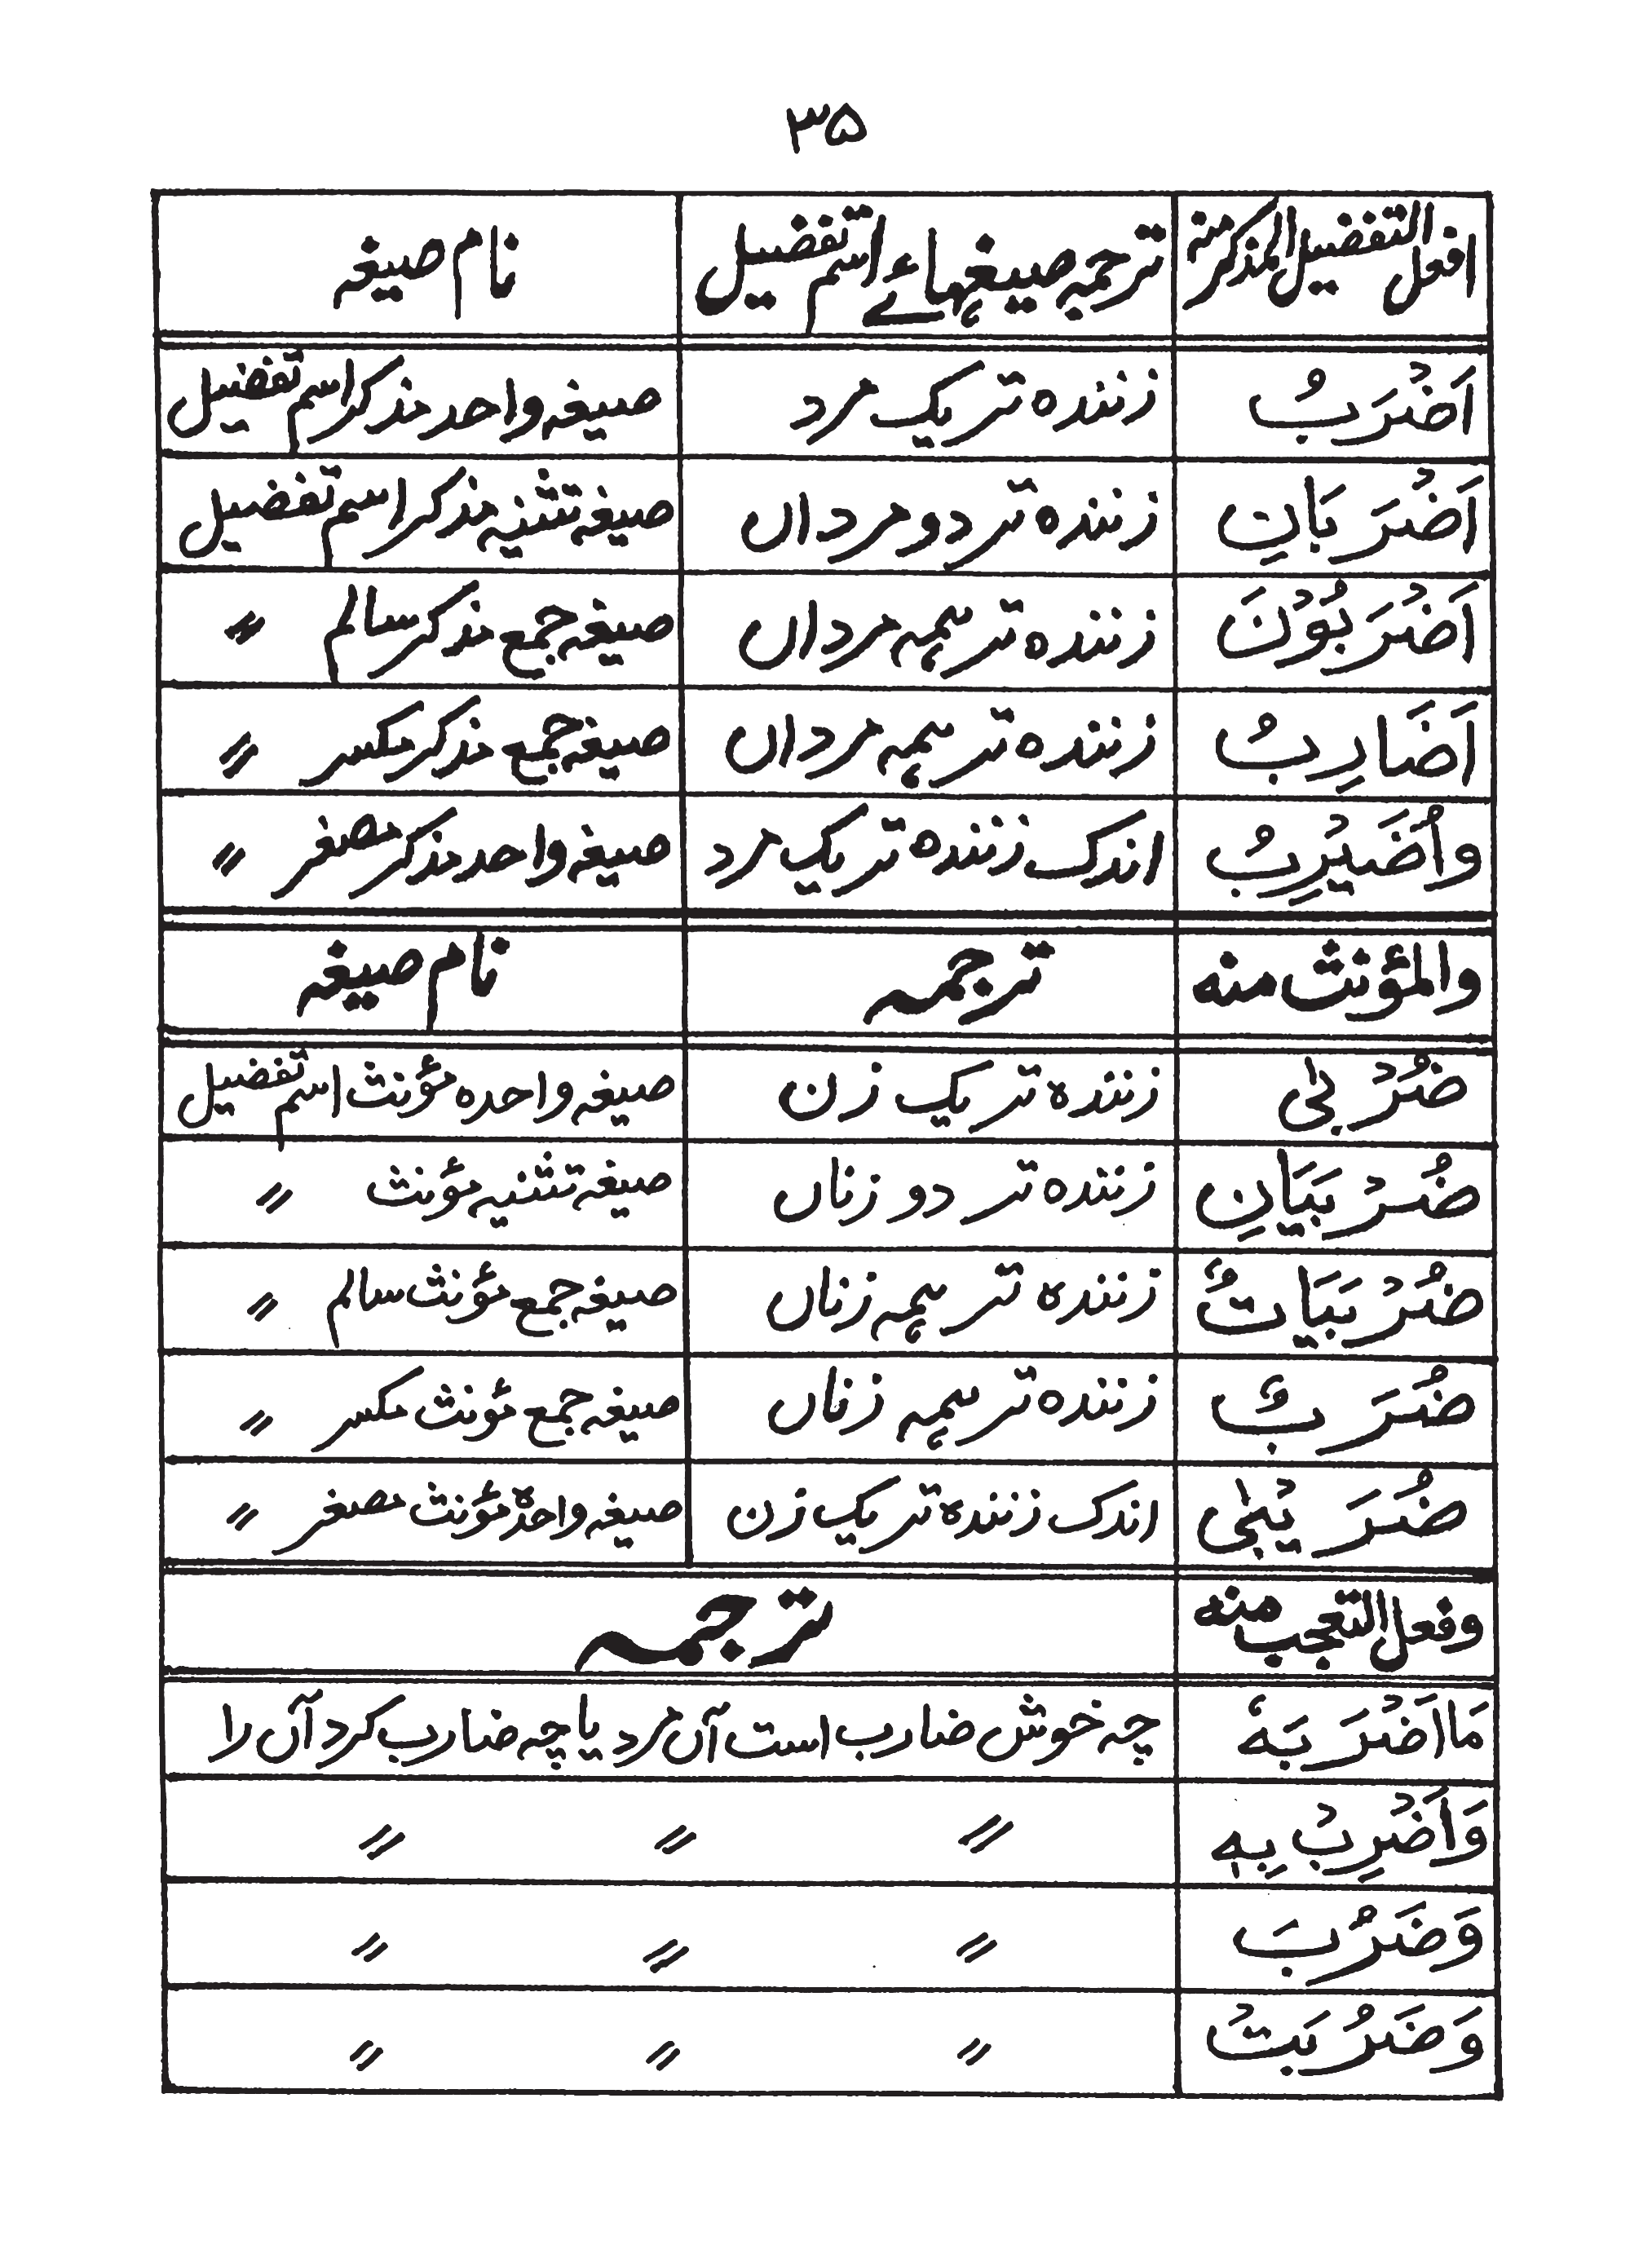 ۳۵
افعل التفضیل المذکر منہ ترجمہ صیغہاۓ اسم تفضیل نام صیغہ
اَضْرَبُ زنندہ تر یک مرد صیغہ واحد مذکر اسم تفضیل
اَضْرَبَانِ زنندہ تر دو مرداں صیغہ تثنیہ مذکر اسم تفضیل
اَضْرَبُوْنَ زنندہ تر ہمہ مرداں صیغہ جمع مذکر سالم 〃
اَضَارِبُ زنندہ تر ہمہ مرداں صیغہ جمع مذکر مکسر 〃
واُضَیْرِبُ اندک زنندہ تر یک مرد صیغہ واحد مذکر مصغر 〃
والمؤنث منہ ترجمہ نام صیغہ
ضُرْبٰی زنندہ تر یک زن صیغہ واحدہ مؤنث اسم تفضیل
ضُرْبَیَانِ زنندہ تر دو زناں صیغہ تثنیہ مؤنث 〃
ضُرْبَیَاتٌ زنندہ تر ہمہ زناں صیغہ جمع مؤنث سالم 〃
ضُرَبٌ زنندہ تر ہمہ زناں صیغہ جمع مؤنث مکسر 〃
ضُرَیْبٰی اندک زنندہ تر یک زن صیغہ واحدہ مؤنث مصغر 〃
وفعل التعجب منہ ترجمہ
مَا اَضْرَبَہٗ چہ خوش ضارب است آں مرد یا چہ ضارب کرد آں را
وَاَضْرِبْ بِہٖ 〃 〃 〃
وَضَرُبَ 〃 〃 〃
وَضَرُبَتْ 〃 〃 〃